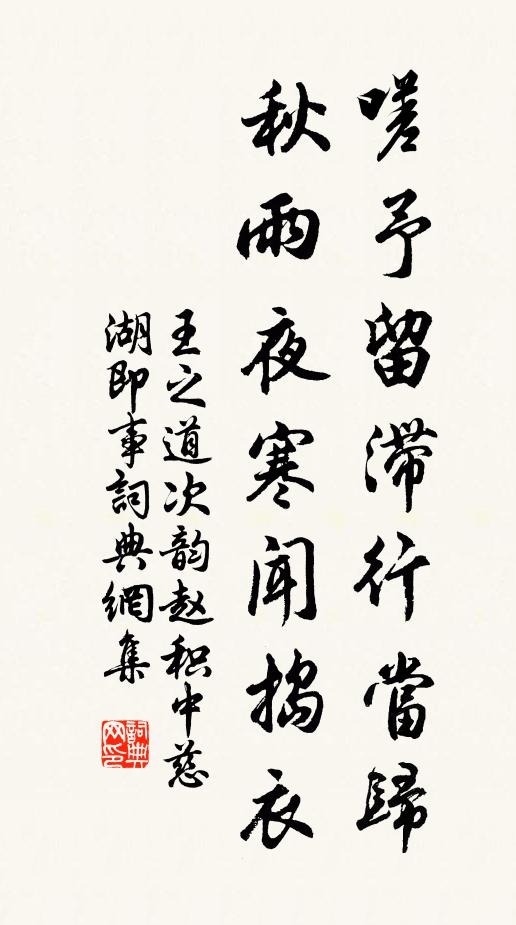 嗟予留滯行當歸
秋雨夜寒聞搗衣
王之道次韵赵积中慈
湖即事詞典網集
詞典网印